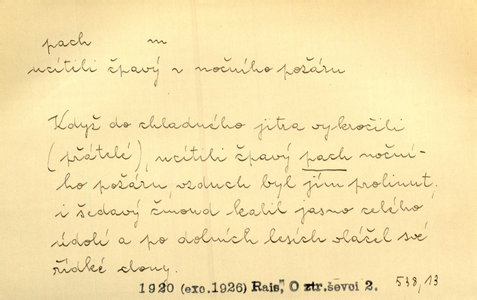 pach m
ucítili čpavý ~ nočního požáru
Když do chladného jitra vykročili
(přátelé), ucítili čpavý pach noční-
ho požáru, vzduch byl jím prolinut,
i šedavý čmoud kalil jasno celého
údolí a po dolních lesích vláčel své
řídké clony.
1920 (exc.1926) Rais, O ztr.ševci 2. 538,13